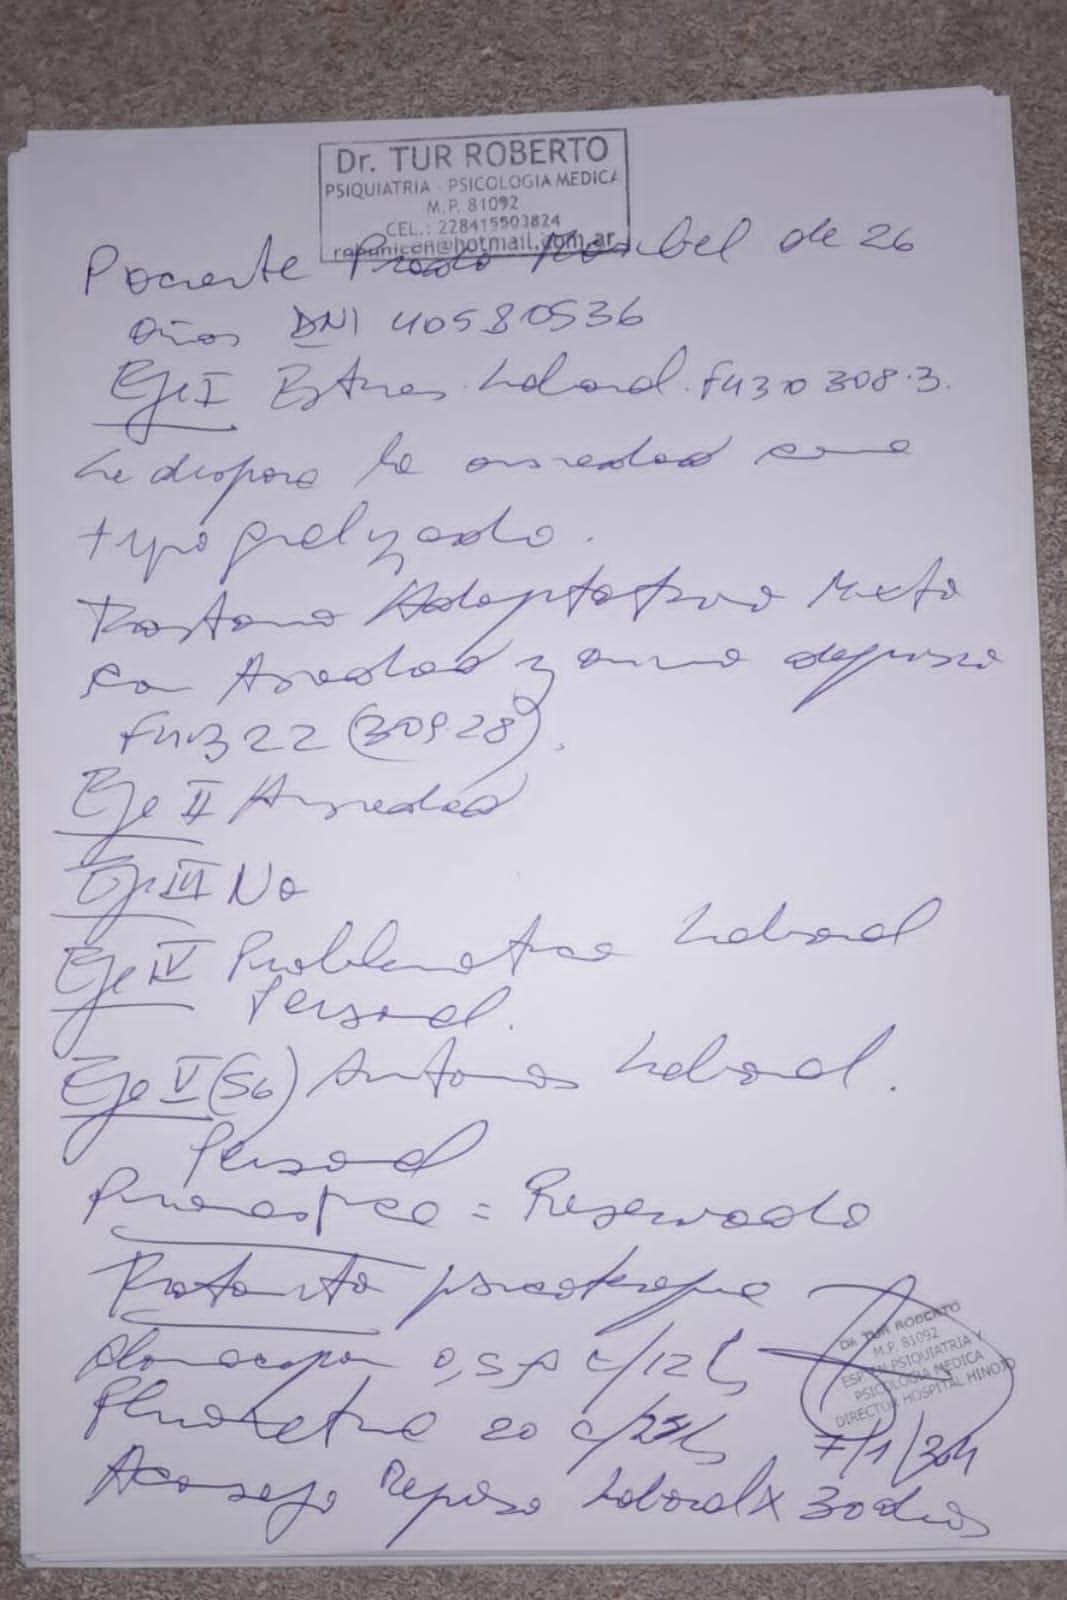 Dr. TUR ROBERTO
PSIQUIATRIA - PSICOLOGIA MEDICA
M.P. 81092
CEL.: 228415503824
robunicen@hotmail.com.ar
Paciente de 26
años DNI 40580536
Eje I Estres Laboral. F43 308.3.
Le dispara la ansiedad
tipo gralizado.
Trastorno Adaptativo Mixto
con Ansiedad y animo depresivo
F43.22 (309.28).
Eje II Ansiedad
Eje III No
Eje IV Problematica Laboral
Personal.
Eje V (56) Sintomas Laboral.
Personal
Pronostico = Reservado
Tratamiento psicoterapia
Clonazepam 0,5 c/12 h
Fluoxetina 20 c/24h
Aconsejo Reposo Laboral x 30 dias
Dr. TUR ROBERTO
M.P. 81092
ESP. EN PSIQUIATRIA Y
PSICOLOGIA MEDICA
DIRECTOR HOSPITAL HINOJO
7/1/